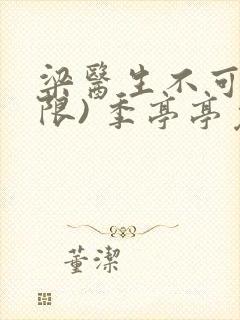 梁醫生不可
限)季亭亭
董潔